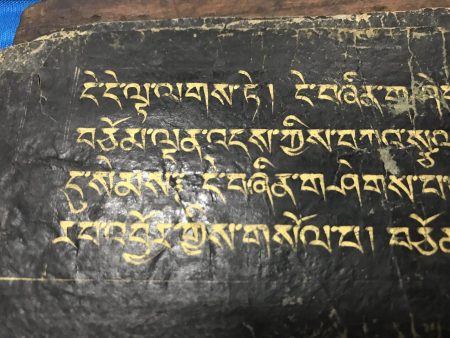 དེ་དེ་ལྟ་ལགས་ཏེ། དེ་བཞིན་གཤེ
བཅོམ་ལྡན་འདས་ཀྱིས་བཀའ་སྩལ
དུ་སེམས། དེ་བཞིན་གཤེགས་པ་
རབ་འབྱོར་གྱིས་གསོལ་པ། བཅོམ